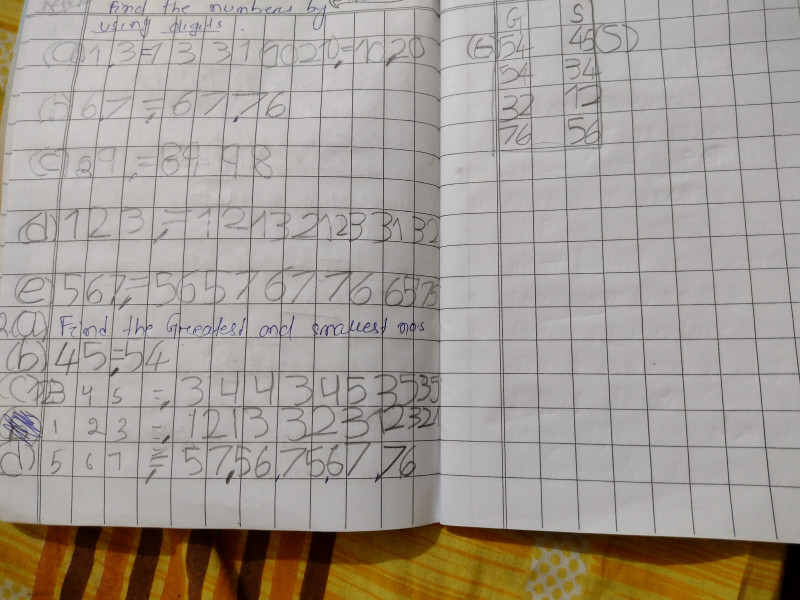 Find the numbers by
using digits.
(a) 1,3=1 3 3 1 10 20,=10,20
(b) 6,7,=67,76
(c) 8 9,=89 98
(d) 1 2 3,=12 13 21 23 31 32
(e) 5 6 7,=56 57 67 76 65 75
2.a) Find the Greatest and smallest nos
(b) 4 5,=54
(c) 3 4 5 =,34 43 45 35
1 2 3 =,12 13 32 31 23 21
d) 5 6 7 =,57,56,75,67,76
G S
(G) 54 45 (S)
54 34
32 12
76 56